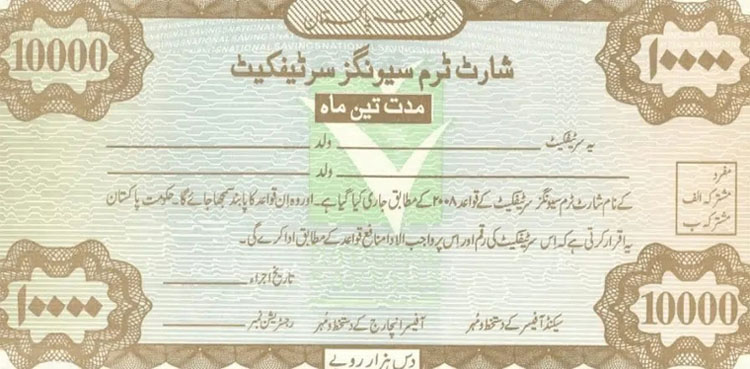 حکومت پاکستان
10000
۱۰۰۰۰
شارٹ ٹرم سیونگز سرٹیفکیٹ
مدت تین ماہ
یہ سرٹیفکیٹ ولد
ولد
مفرد
مشترکہ الف
مشترکہ ب
کے نام شارٹ ٹرم سیونگز سرٹیفکیٹ کے قواعد ۲۰۰۸ کے مطابق جاری کیا گیا ہے۔ اور وہ ان قواعد کا پابند سمجھا جائے گا۔ حکومت پاکستان
یہ اقرار کرتی ہے کہ اس سرٹیفکیٹ کی رقم اور اس پر واجب الادا منافع قواعد کے مطابق ادا کرے گی۔
تاریخ اجراء
سیکنڈ آفیسر کے دستخط و مُہر آفیسر انچارج کے دستخط و مُہر رجسٹریشن نمبر
۱۰۰۰۰
10000
دس ہزار روپے